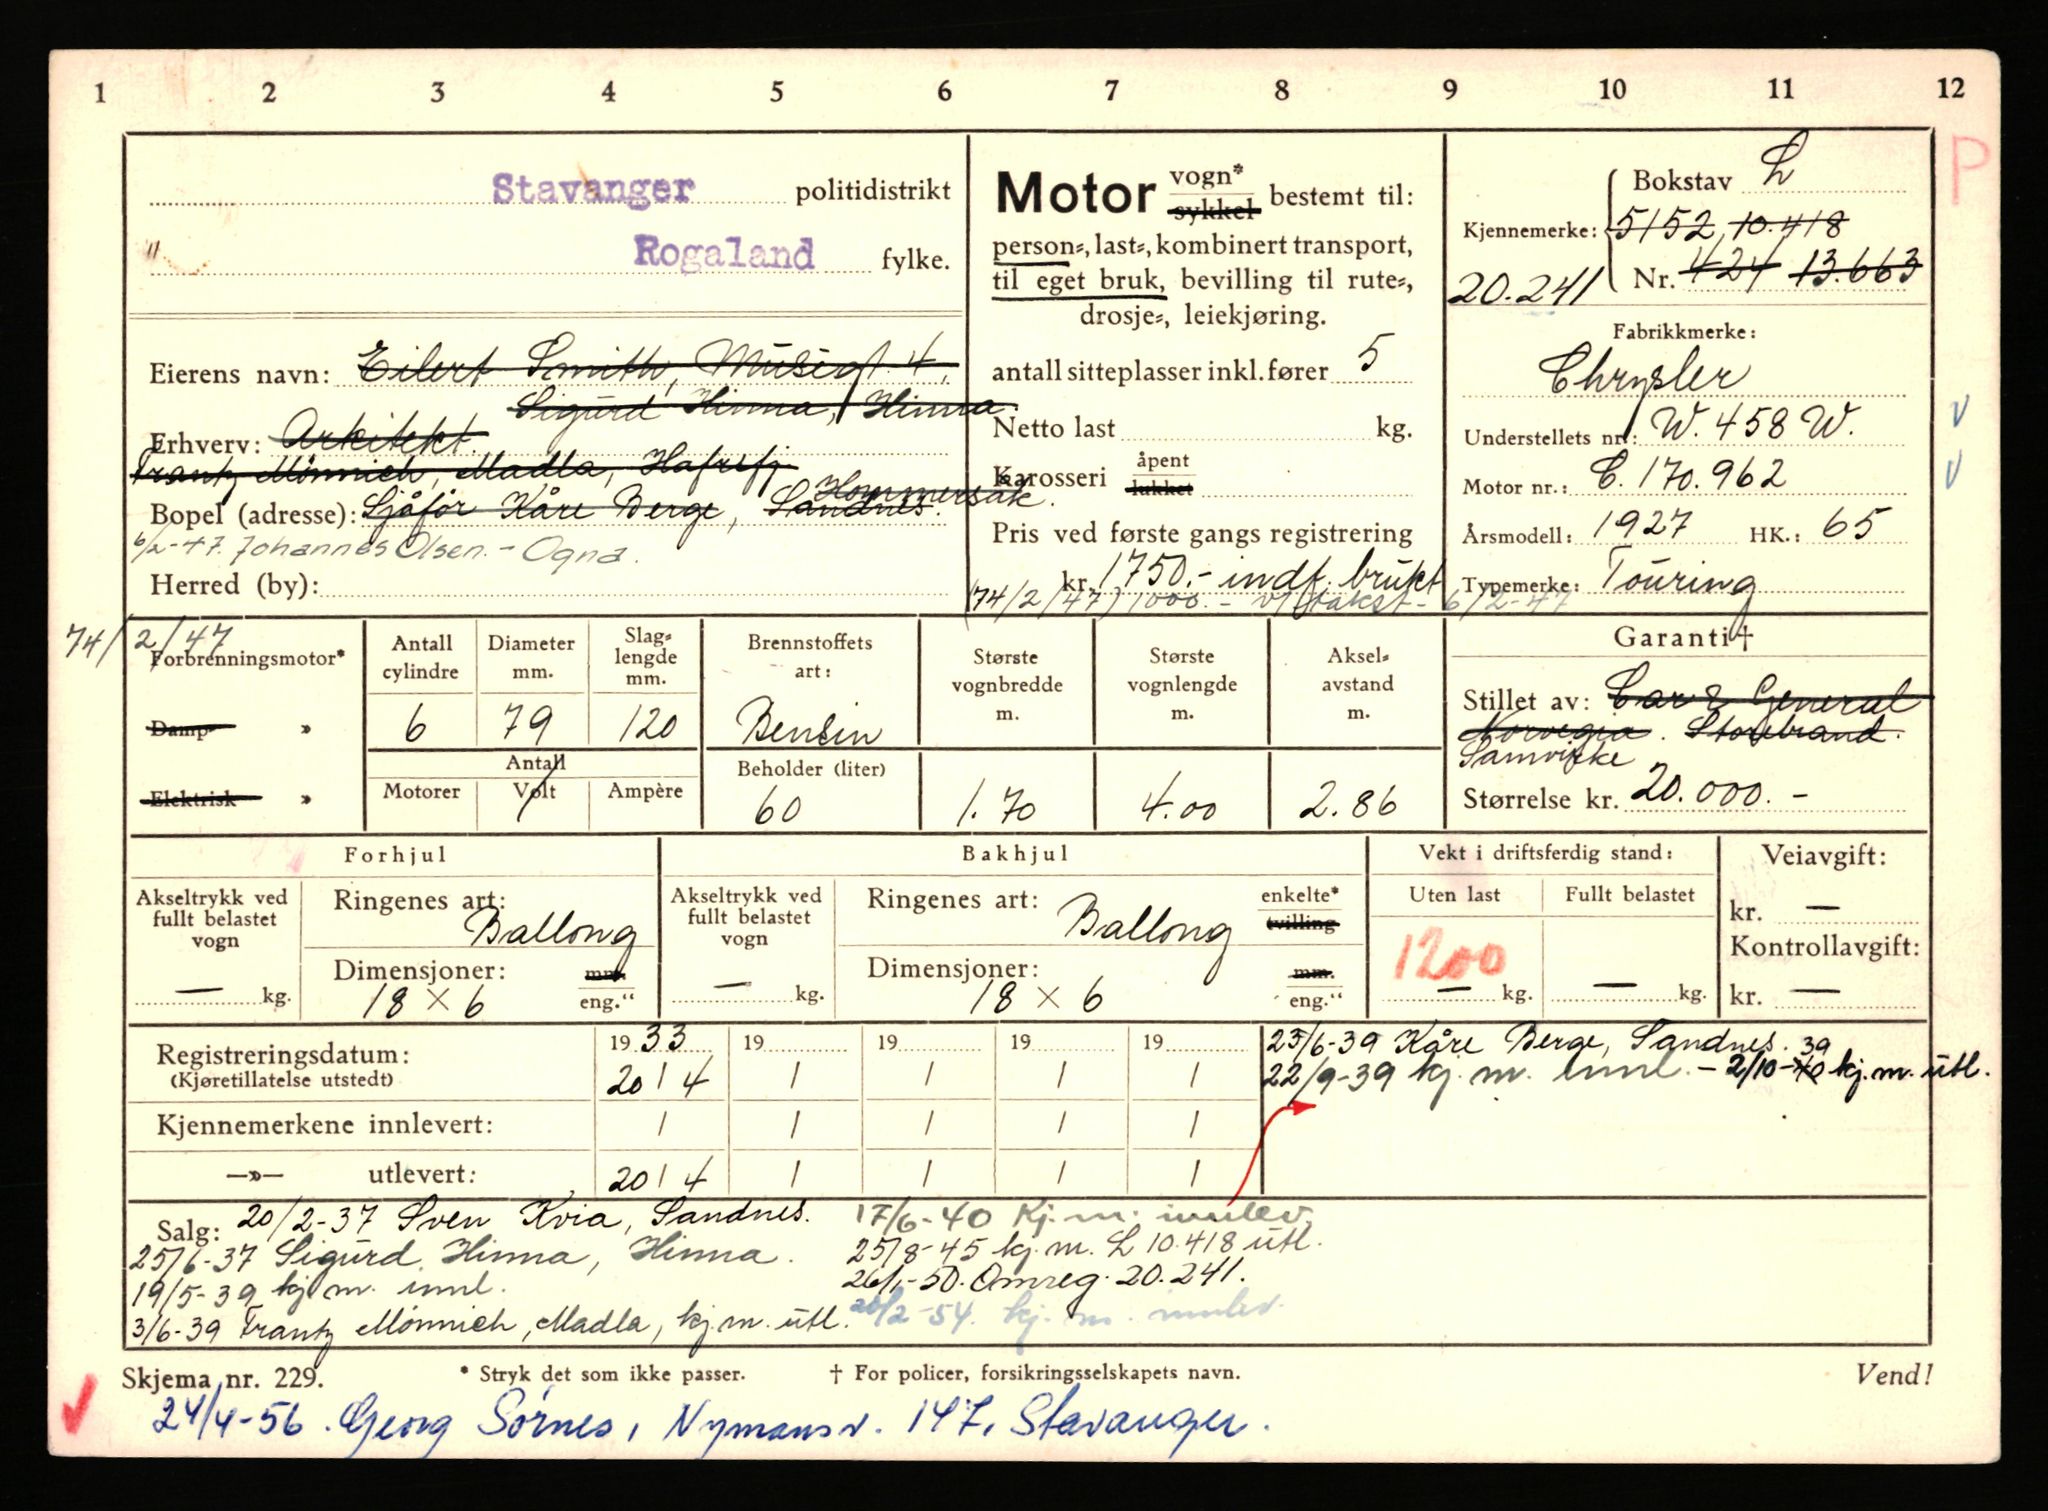 1 2 3 4 5 6 7 8 9 10 11 12
Stavanger politidistrikt
" Rogaland fylke.
Eierens navn: Eilert Smith, Muségt 4,
Sigurd Hinna, Hinna.
Erhverv: Arkitekt.
Frantz Mönnich, Madla, Hafrsfj
Hommersåk.
Bopel (adresse): Sjåför Kåre Berge, Sandnes.
6/2-47. Johannes Olsen. - Ogna.
Herred (by):
Motor vogn* sykkel bestemt til:
person=, last=, kombinert transport,
til eget bruk, bevilling til rute=,
drosje=, leiekjøring.
antall sitteplasser inkl. fører 5
Netto last kg.
Karosseri åpent lukket
Pris ved første gangs registrering
kr. 1750.- indf. brukt
(74/2/47) 1000.- v/takst - 6/2-47
P
Bokstav L
Kjennemerke: 5152 10.418
20.241 Nr. 424 13.663
Fabrikkmerke:
Chrysler
Understellets nr.: W. 458 W. v
Motor nr.: C. 170.962 v
Årsmodell: 1927 HK.: 65
Typemerke: Touring
74/2/47
Forbrenningsmotor*
Damp- »
Elektrisk »
Antall cylindre
6
Diameter mm.
79
Slag=lengde mm.
120
Antall
Motorer Volt Ampère
Brennstoffets art:
Bensin
Beholder (liter)
60
Største vognbredde m.
1.70
Største vognlengde m.
4.00
Aksel=avstand m.
2.86
Garanti †
Stillet av: Car & General
Norvegia. Storebrand.
Samvirke
Størrelse kr. 20.000.-
Forhjul
Akseltrykk ved fullt belastet vogn
— kg.
Ringenes art:
Ballong
Dimensjoner: mm.
18 × 6 eng."
Bakhjul
Akseltrykk ved fullt belastet vogn
— kg.
Ringenes art: enkelte* tvilling
Ballong
Dimensjoner: mm.
18 × 6 eng."
Vekt i driftsferdig stand:
Uten last Fullt belastet
1200
— kg. — kg.
Veiavgift:
kr. —
Kontrollavgift:
kr. —
Registreringsdatum: 1933 19 19 19 19
(Kjøretillatelse utstedt) 20 / 4 / / / /
Kjennemerkene innlevert: / / / / /
—»— utlevert: 20 / 4 / / / /
25/6-39 Kåre Berge, Sandnes. 39
22/9-39 kj. m. innl. - 2/10-40 kj.m. utl.
Salg: 20/2-37 Sven Kvia, Sandnes.
25/6-37 Sigurd Hinna, Hinna.
19/5-39 kj. m. innl.
3/6-39 Frantz Mönnich, Madla, kj.m. utl.
17/6-40 Kj. m. innlev.
25/8-45 kj. m. L 10.418 utl.
26/1-50. Omreg. 20.241.
20/2-54. kj. m. innlev.
Skjema nr. 229. * Stryk det som ikke passer. † For policer, forsikringsselskapets navn. Vend!
24/4-56. Georg Sörnes, Nymansv. 147, Stavanger.